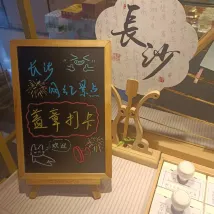 长沙
网红景点
盖章打卡
欢迎
長沙